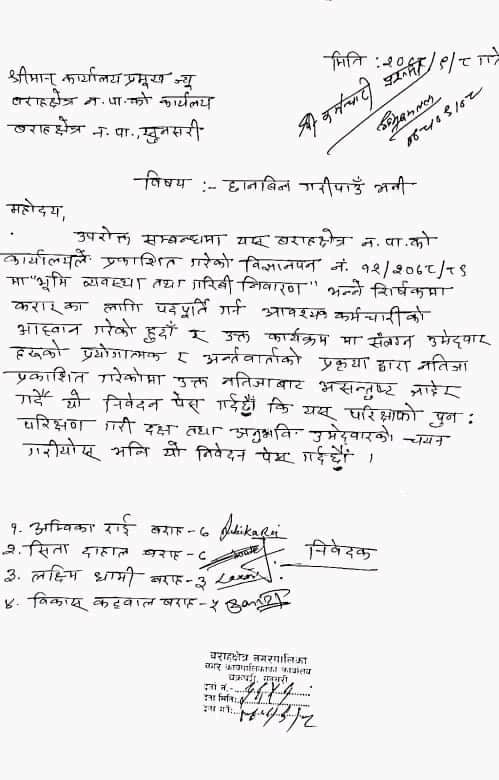 मिति : २०७८/९/८ गते
श्रीमान् कार्यालय प्रमुख ज्यू
बराहक्षेत्र न.पा.को कार्यलय
श्री कर्मचारी
बराहक्षेत्र न.पा., सुनसरी
विषय :- छानबिन गरीपाउँ भनी
महोदय,
उपरोक्त सम्बन्धमा यस बराहक्षेत्र न.पा.को
कार्यालयले प्रकाशित गरेको विज्ञानपन नं. १२/२०७८/७९
मा "भूमि व्यवस्था तथा गरिबी निवारण" भन्ने शिर्षकमा
करारका लागि पदपूर्ति गर्न आवश्यक कर्मचारीको
आह्वान गरेको हुदाँ र उक्त कार्यक्रम मा संलग्न उमेदवार
हरुको प्रयोगात्मक र अर्न्तवार्ताको प्रकृया द्वारा नतिजा
प्रकाशित गरेकोमा उक्त नतिजाबाट असन्तुष्ट जाहेर
गर्दै यो निवेदन पेस गर्दछौं कि यस परिक्षाको पुन :
परिक्षण गरी दक्ष तथा अनुभवि उमेदवारको चयन
गरीयोस् भनि यो निवेदन पेस गर्दछौं ।
१. अम्बिका राई बराह-६
२. सिता दाहाल बराह-८
निवेदक
३. लक्ष्मि धामी बराह-३
४. विकास कटवाल बराह-५
बराहक्षेत्र नगरपालिका
नगर कार्यपालिकाको कार्यालय
चक्रघट्टी, सुनसरी
दर्ता नं.-
दर्ता मिति: